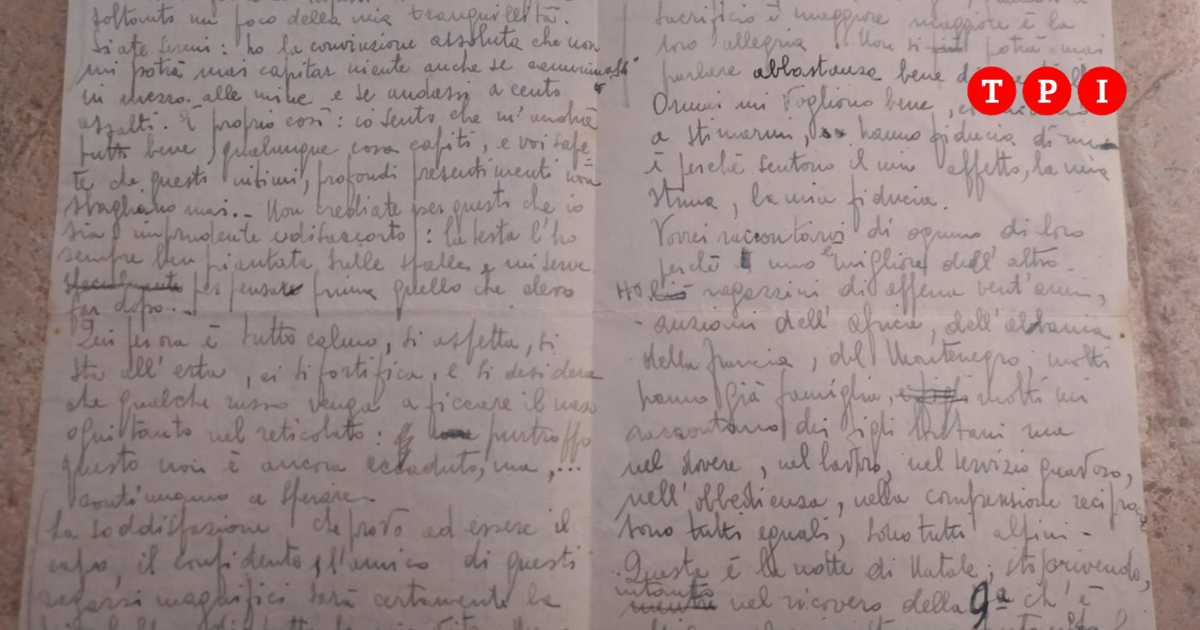 soltanto un poco della mia tranquillità.
Siate sereni: ho la convinzione assoluta che non
mi potrà mai capitar niente anche se camminassi
in mezzo alle mine e se andassi a cento
assalti. È proprio così: io sento che m'andrà
tutto bene, qualunque cosa capiti, e voi sape=
te che questi intimi, profondi presentimenti non
sbagliano mai. - Non crediate per questo che io
sia imprudente : la testa l'ho
sempre ben piantata sulle spalle e mi serve
per pensare prima quello che devo
far dopo. -
Qui per ora è tutto calmo, si aspetta, si
sta all'erta, ci si fortifica, e si desidera
che qualche russo venga a ficcare il naso
ogni tanto nel reticolato: purtroppo
questo non è ancora accaduto, ma,...
continuiamo a sperare.
La soddisfazione che provo ad essere il
capo, il confidente, l'amico di questi
ragazzi magnifici sarà certamente la
sacrificio è maggiore maggiore è la
loro allegria. Non si potrà mai
parlare abbastanza bene di
Ormai mi vogliono bene,
a stimarmi, hanno fiducia di me
è perchè sentono il mio affetto, la mia
stima, la mia fiducia.
Vorrei raccontarvi di ognuno di loro
perchè uno è migliore dell'altro.
Ho ragazzini di appena vent'anni,
anziani dell'Africa, dell'Albania
della Francia, del Montenegro; molti
hanno già famiglia, molti mi
raccontano dei figli lontani ma
nel dovere, nel lavoro, nel servizio gravoso,
nell'obbedienza, nella comprensione reciproca
sono tutti eguali, sono tutti alpini -
Questa è la notte di Natale; sto scrivendo,
intanto nel ricovero della 9ª ch'è
TPI